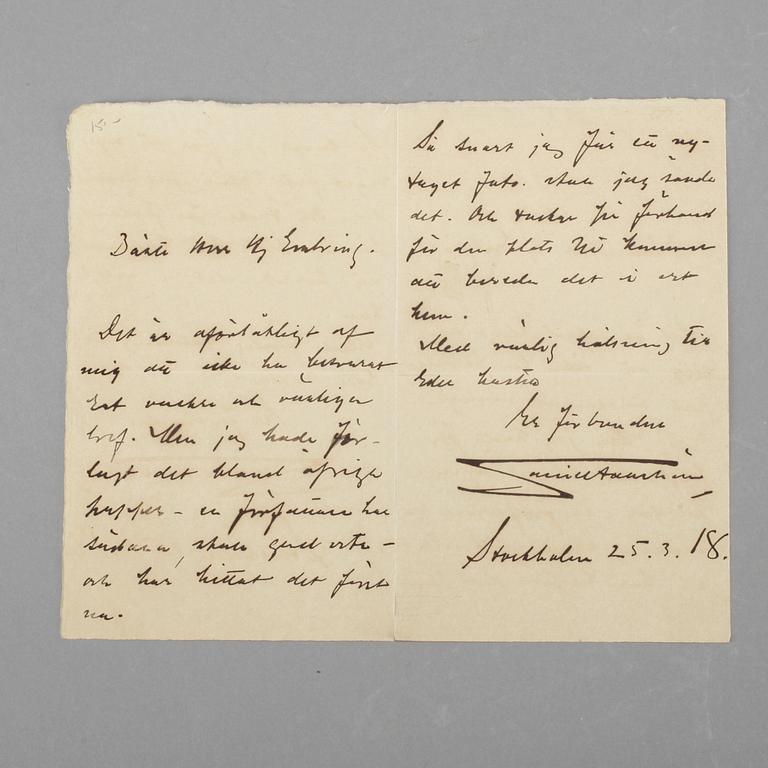 15:-
Bäste Herr Hj Enebring.
Det är oförlåtligt af
mig att icke ha besvarat
Ert vackra och vänliga
bref. Men jag hade för-
lagt det bland öfriga
papper – en författare har
sådana, skall gud veta –
och har hittat det först
nu.
Så snart jag får ett ny-
taget foto. skall jag sända
det. Och tackar på förhand
för den plats Ni kommer
att bereda det i ert
hem.
Med vänlig hälsning till
Eder hustru
Er förbundne
Stockholm 25.3.18.